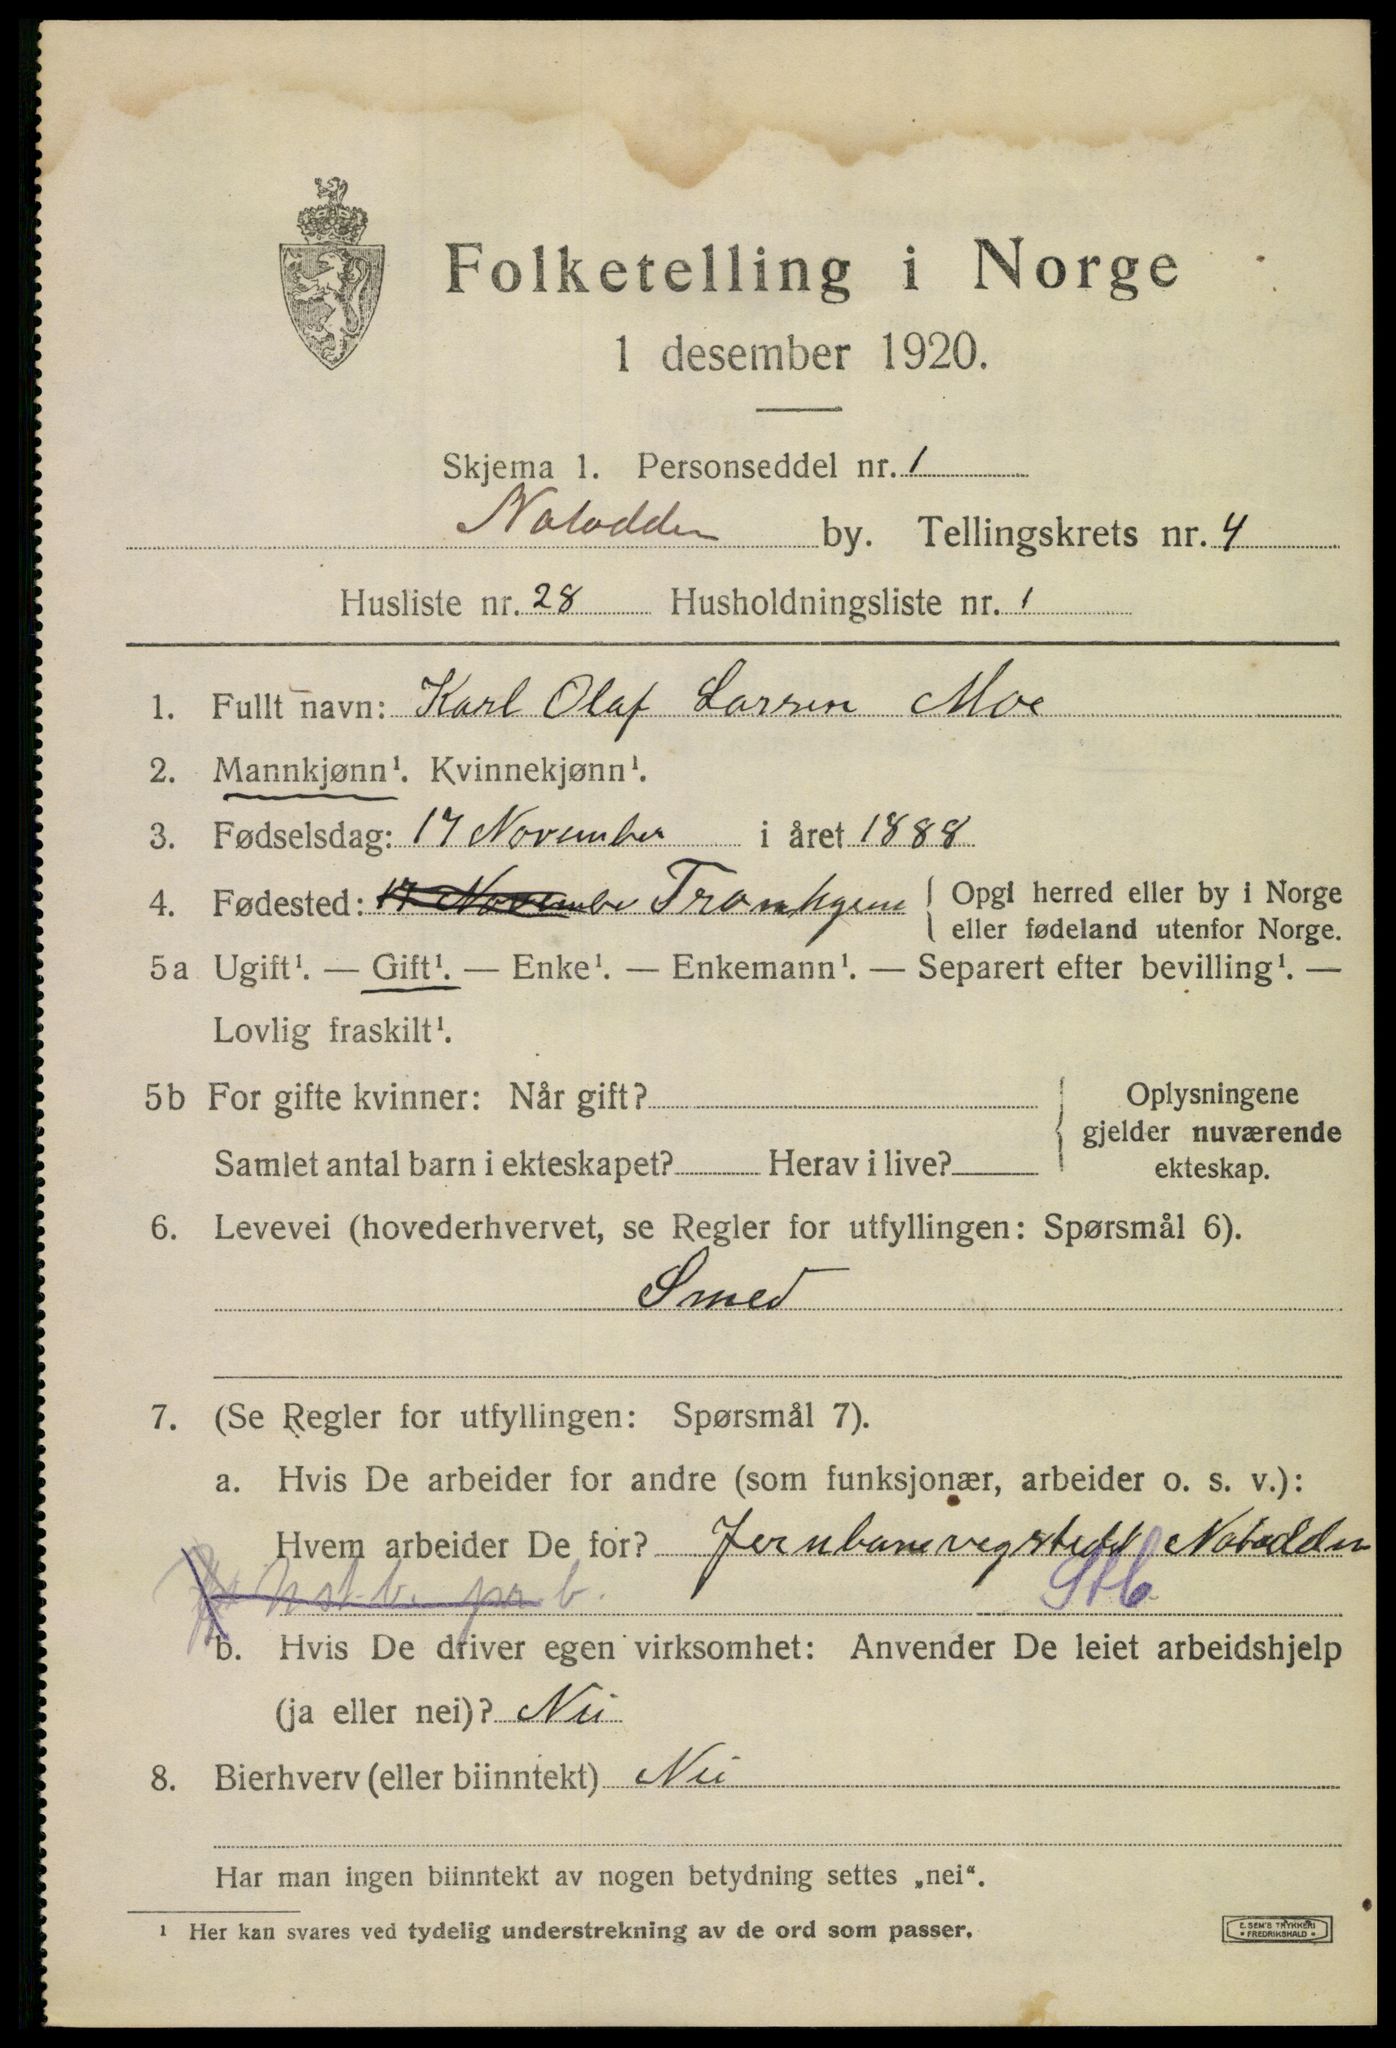 Folketelling i Norge
1 desember 1920.
Skjema 1. Personseddel nr. 1
Notodden by. Tellingskrets nr. 4
Husliste nr. 28 Husholdningsliste nr. 1
1. Fullt navn: Karl Olaf Larsen Moe
2. Mannkjønn¹. Kvinnekjønn¹.
3. Fødselsdag: 17 November i året 1888
4. Fødested: 17 Novembe { Opgi herred eller by i Norge
eller fødeland utenfor Norge.
5a Ugift¹. — Gift¹. — Enke¹. — Enkemann¹. — Separert efter bevilling¹. —
Lovlig fraskilt¹.
5b For gifte kvinner: Når gift? { Oplysningene
gjelder nuværende
Samlet antal barn i ekteskapet? Herav i live? ekteskap.
6. Levevei (hovederhvervet, se Regler for utfyllingen: Spørsmål 6).
Smed
7. (Se Regler for utfyllingen: Spørsmål 7).
a. Hvis De arbeider for andre (som funksjonær, arbeider o. s. v.):
Hvem arbeider De for? Jernbanevegstedt Notodden
Stb
b. Hvis De driver egen virksomhet: Anvender De leiet arbeidshjelp
(ja eller nei)? Nei
8. Bierhverv (eller biinntekt) Nei
Har man ingen biinntekt av nogen betydning settes „nei“.
¹ Her kan svares ved tydelig understrekning av de ord som passer.
E. SEM'S TRYKKERI
FREDRIKSHALD